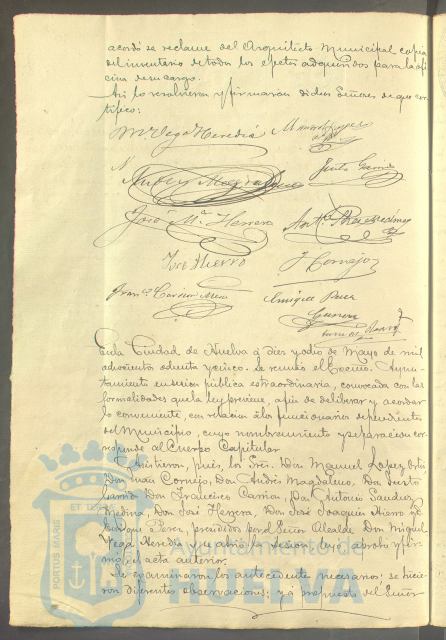 acordó se reclame del Arquitecto Municipal copia
del inventario de todos los efectos adquiridos para la ofi
cina de su cargo.
Así lo resolvieron y firmaron dichos Señores de que cer
tifico:
Ml. Vega Heredia
Justo Garrido
José Mª Herrero
José Hierro
J Cornejo
Enrique Perez
En la Ciudad de Huelva á diez y ocho de Mayo de mil
ochocientos ochenta y cinco. Se reunió el Excmo. Ayun-
tamiento en sesión pública extraordinaria, convocada con las
formalidades que la ley previene, a fin de deliberar y acordar
lo conveniente, con relacion á los funcionarios dependientes
del Municipio, cuyo nombramiento y separacion cor-
responde al Cuerpo Capitular.
Asistieron, pues, los Sres. Don Manuel Lopez Ortiz,
Don Juan Cornejo, Don Andrés Magdaleno, Don Justo
Garrido Don Francisco Carrion, Don Antonio Sanchez
Medina, Don José Herrera, Don José Joaquin Hierro y Don
Enrique Perez, presididos por el Señor Alcalde Don Miguel
Vega Heredia, y abierta la sesion, leyó, aprobó y fir-
mó el acta anterior.
Se examinaron los antecedentes necesarios; se hicie-
ron diferentes observaciones; y á propuesta del Señor
PORTUS MARIS
ET TERRAE
Ayuntamiento de
HUELVA